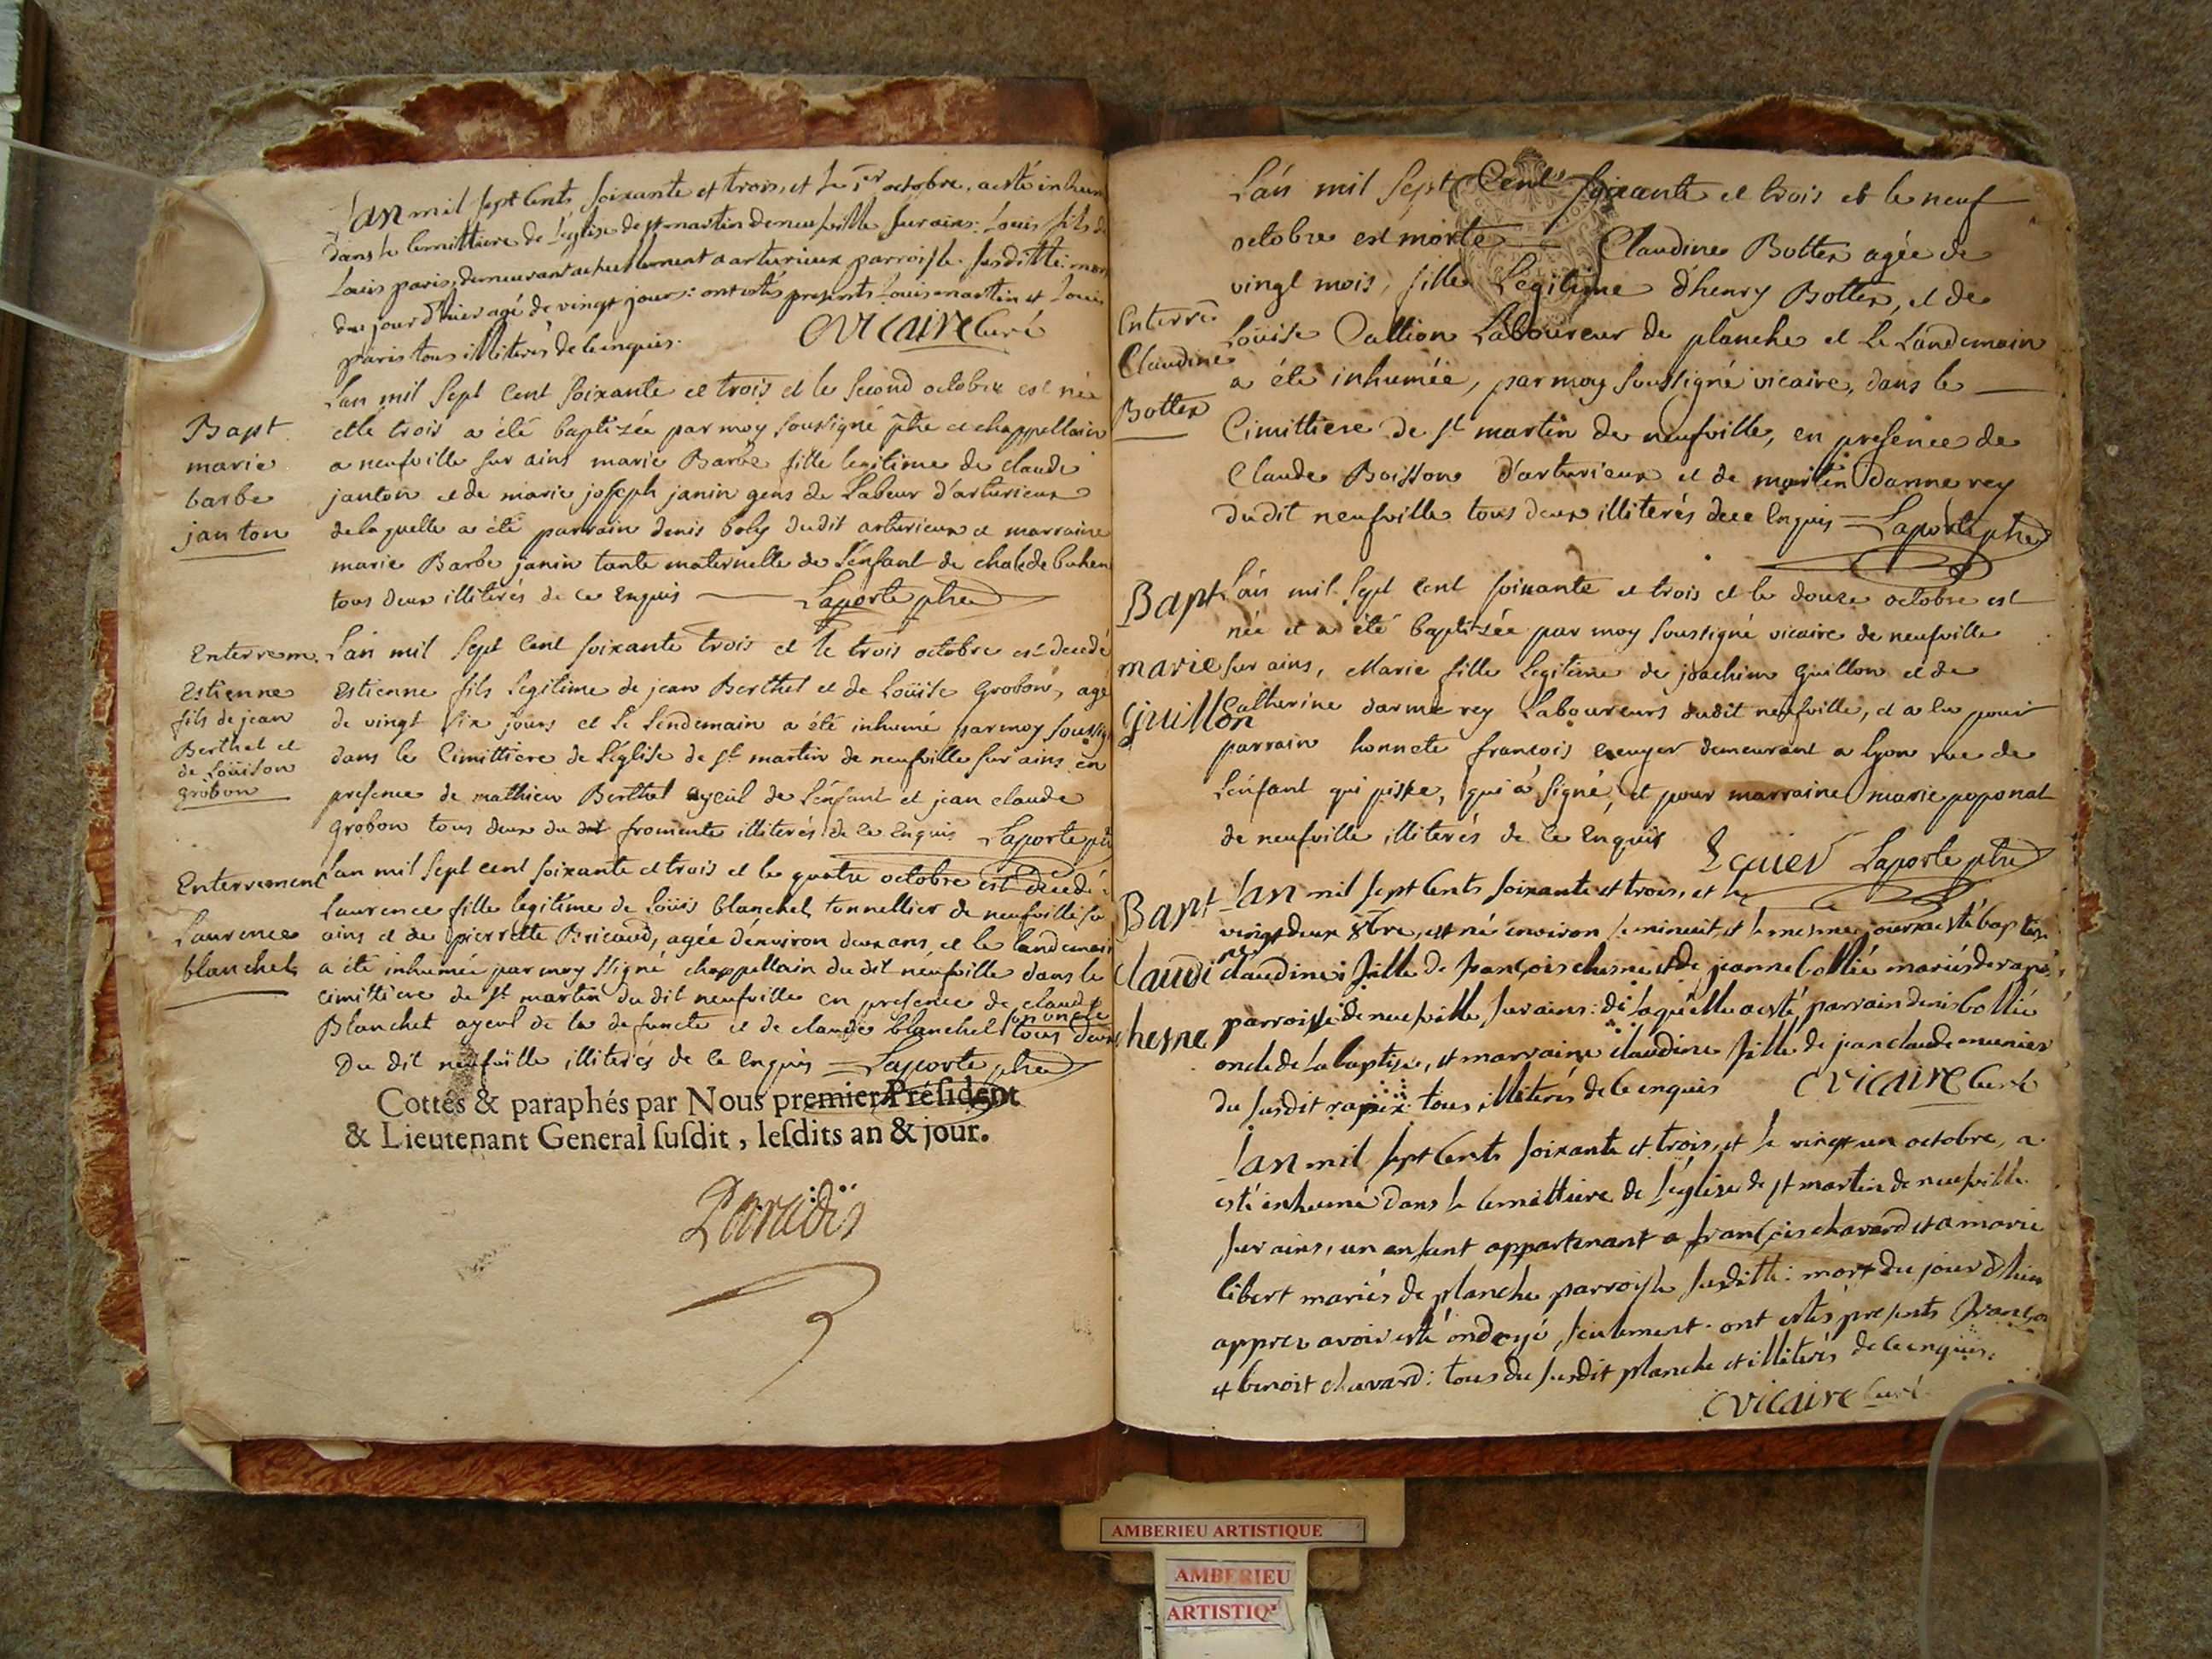 Lan mil sept cents soixante et trois, et le 1er octobre, a esté inhumé
dans le cemittiere de l'eglise de st martin de neufville sur ains: Louis fils de
Louis paris, demeurant actuellement a arturieux parroisse susditte: mort
du jour d'hier agé de vingt jours: ont estés presents Louis martin et Louis
paris tous illiterés de ce enquis. C vicaire Curé
Lan mil sept cent soixante et trois et le second octobre est née
et le trois a été baptisée par moy soussigné ptre et chappellain
a neufville sur ains marie Barbe fille legitime de claude
janton et de marie joseph janin gens de Labeur d'arturieux
de laquelle a été parrain denis boly dudit arturieux et marraine
marie Barbe janin tante maternelle de l'enfant de
tous deux illiterés de ce Enquis Laporte ptre
Bapt
marie
barbe
janton
L'an mil sept cent soixante trois et le trois octobre est decedé
Estienne fils legitime de jean Berthet et de Loüise Grobon, agé
de vingt six jours et le lendemain a été inhumé par moy soussigné
dans le Cimittiere de l'eglise de st martin de neufville sur ains en
presence de mathieu Berthet ayeul de l'enfant et jean claude
grobon tous deux du dit fromente illiterés de ce Enquis Laporte ptre
Enterrem.
Estienne
fils de jean
Berthet et
de Loüison
grobon
Lan mil sept cent soixante et trois et le quatre octobre est decedé
Laurence fille legitime de Loüis blanchet tonnellier de neufville sur
ains et de pierrette Bricaud, agée d'environ deux ans, et le landemain
a été inhumée par moy ssigné chappellain du dit neufville dans le
cimittiere de st martin du dit neufville en presence de claude
Blanchet ayeul de la defuncte et de claude blanchet son oncle tous deux
Du dit neufville illiterés de ce Enquis Laporte ptre
Enterrement
Laurence
blanchet
Cottés & paraphés par Nous premier Préſident
& Lieutenant General ſuſdit, leſdits an & jour.
Paradis
L'an mil Sept Cent Soixante et trois et le neuf
octobre est morte Claudine Bottex agée de
vingt mois, fille Legitime d'henry Bottex, et de
Loüise Laboureur de planche et le Landemain
a été inhumée, par moy soussigné vicaire, dans le
Cimittiere de st martin de neufville, en presence de
Claude Boisson d'arturieux et de martin darmerey
dudit neufville tous deux illiterés de ce Enquis Laporte ptre
Enterre
Claudine
Bottex
L'an mil sept cent soixante et trois et le douze octobre est
née et a été baptisée par moy soussigné vicaire de neufville
sur ains, Marie fille legitime de joachim Guillon et de
Catherine darmerey Laboureurs dudit neufville, et a eu pour
parrain honnete françois ecuyer demeurant a Lyon rue de
L'enfant qui pisse, qui a signé, et pour marraine marie poponat
de neufville illiterés de ce Enquis Ecuier Laporte ptre
Bapt
marie
guillon
Lan mil sept cents soixante et trois, et le
vingt deux 8bre, est né environ le minuit, et le mesme jour a esté baptisée
claudine: fille de françois chesne et de jeanne bollié mariés de rapix
parroisse de neufville sur ains: de laquelle a esté parrain denis bollié
oncle de la baptisée, et marraine claudine fille de jean claude munier
du susdit rapix: tous illiterés de ce enquis C vicaire Curé
Bapt
claudine
chesne
Lan mil sept cents soixante et trois, et le vingt un octobre, a
esté inhumé dans le cemittiere de l'eglise de st martin de neufville
sur ains, un enfant appartenant a françois chavard et a marie
libert mariés de planche parroisse susditte: mort du jour d'hier
apprés avoir esté ondoyé seulement. ont estés presents françois
et benoist chavard: tous du susdit planche et illiterés de ce enquis.
C vicaire Curé
AMBERIEU ARTISTIQUE
AMBERIEU
ARTISTIQ